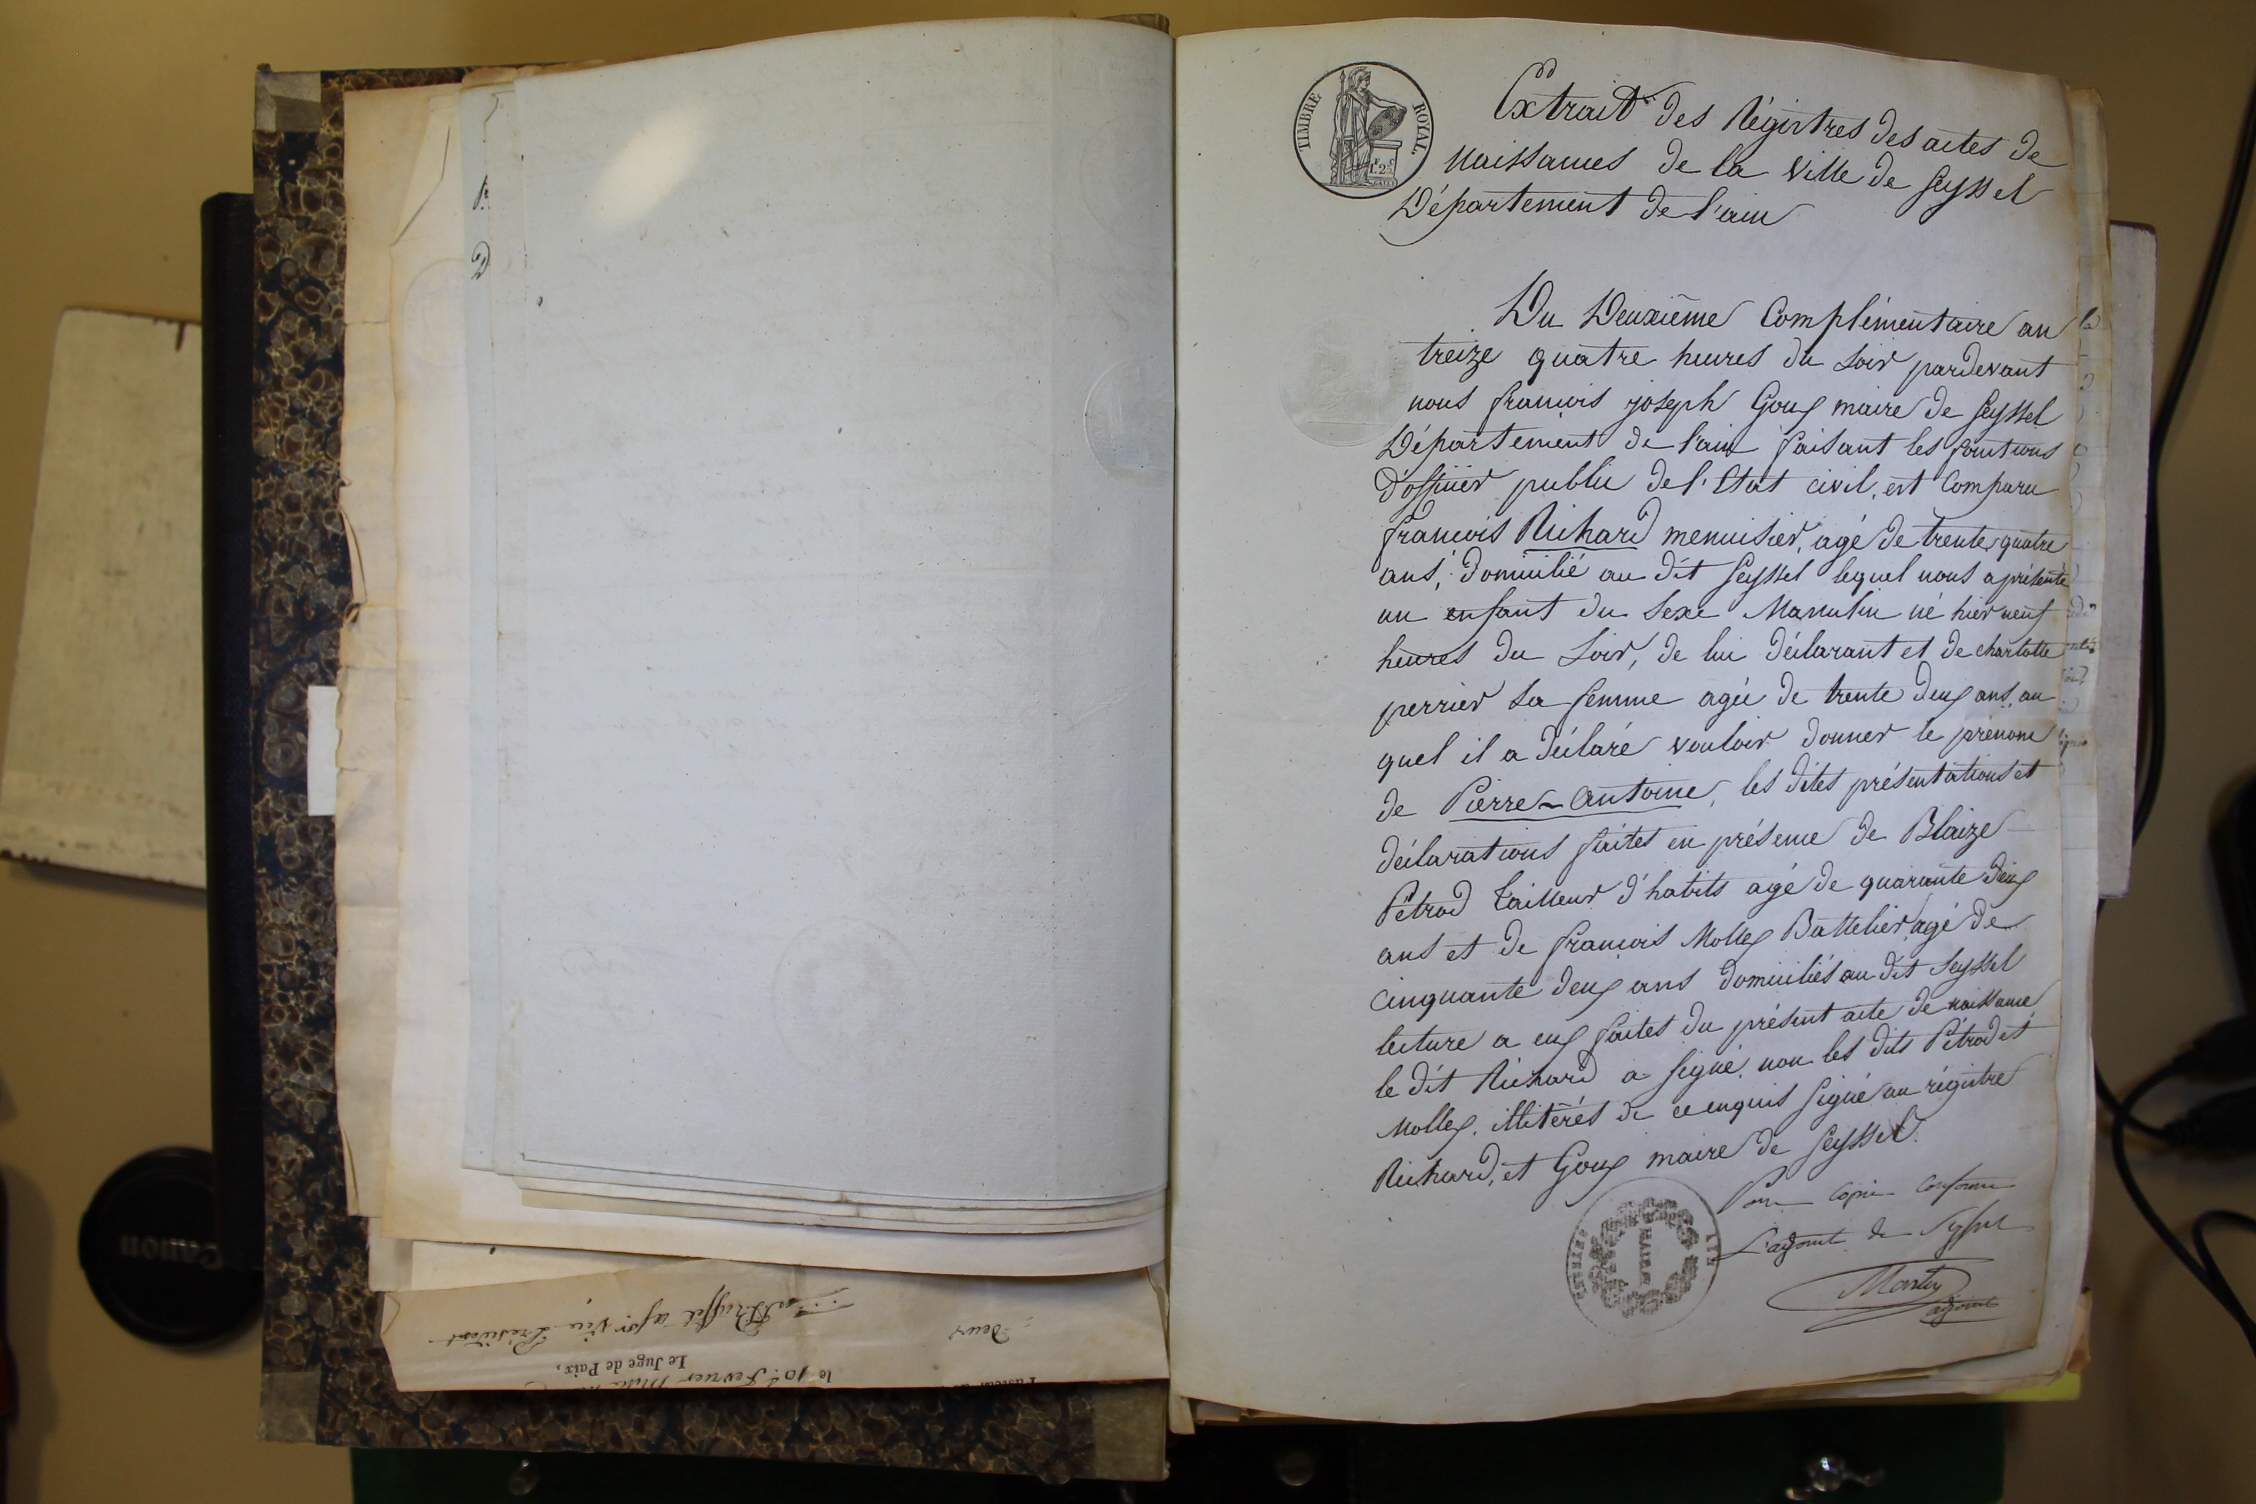 TIMBRE ROYAL
Extrait des Régistres des actes de
Naissances de la Ville de Seyssel
Département de l'ain
Du Deuxième Complémentaire an
treize quatre heures du soir pardevant
nous francois joseph Goux maire de Seyssel
Département de l'ain faisant les fonctions
d'officier public de l'Etat civil, est Comparu
francois Richard menuisier, agé de trente quatre
ans, domicilié au dit Seyssel lequel nous a présenté
un enfant du sexe Masculin né hier neuf
heures du soir, de lui déclarant et de charlotte
perrier sa femme agée de trente deux ans, au
quel il a déclaré vouloir donner le prénom
de Pierre-Antoine, les dites présentations et
déclarations faites en présence de Blaize
Pétrod tailleur d'habits agé de quarante deux
ans et de francois Mollex Battelier, agé de
cinquante deux ans domiciliés au dit Seyssel
lecture a eux faites du présent acte de naissance,
le dit Richard a signé, non les dits Pétrod et
Mollex, illitérés de ce enquis signé au régistre
Richard, et Goux maire de Seyssel.
Pour Copie Conforme
L'adjoint de Seyssel
adjoint
MAIRIE
AIN
le 10e fevrier
Le Juge de Paix,